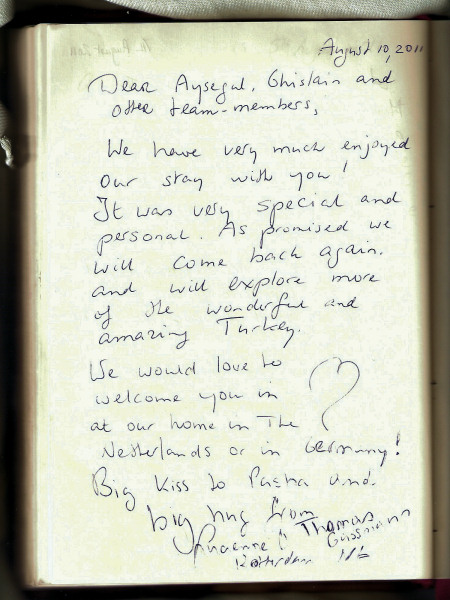 August 10, 2011
Dear Aysegul, Ghislain and
other team-members,
We have very much enjoyed
our stay with you!
It was very special and
personal. As promised we
will come back again.
and will explore more
of the wonderful and
amazing Turkey.
We would love to
welcome you in
at our home in The
Netherlands or in Germany!
Big kiss to Pasha and.
big hug from
Thomas
Gussmann
Rotterdam